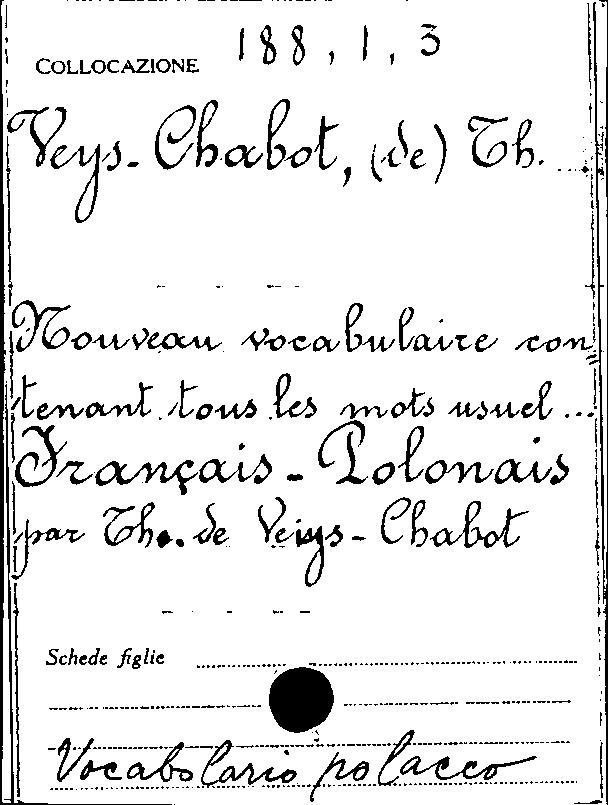 COLLOCAZIONE 188, 1, 3
Veys-Chabot, (de) Th.
Nouveau vocabulaire con=
tenant tous les mots usuel...
Français - Polonais
par Th. de Veys-Chabot
Schede figlie
Vocabolario polacco